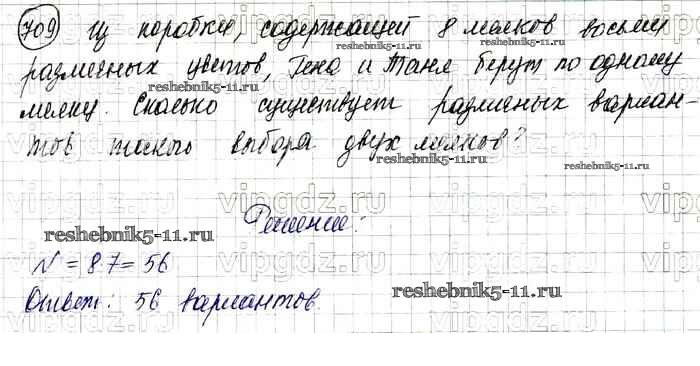 709 Из коробки, содержащей 8 мелков восьми
различных цветов, Гена и Таня берут по одному
мелку. Сколько существует различных вариан-
тов такого выбора двух мелков?
reshebnik5-11.ru
reshebnik5-11.ru
reshebnik5-11.ru
reshebnik5-11.ru
reshebnik5-11.ru
Решение:
reshebnik5-11.ru
N = 8·7 = 56
Ответ: 56 вариантов.
reshebnik5-11.ru
vipgdz.ru